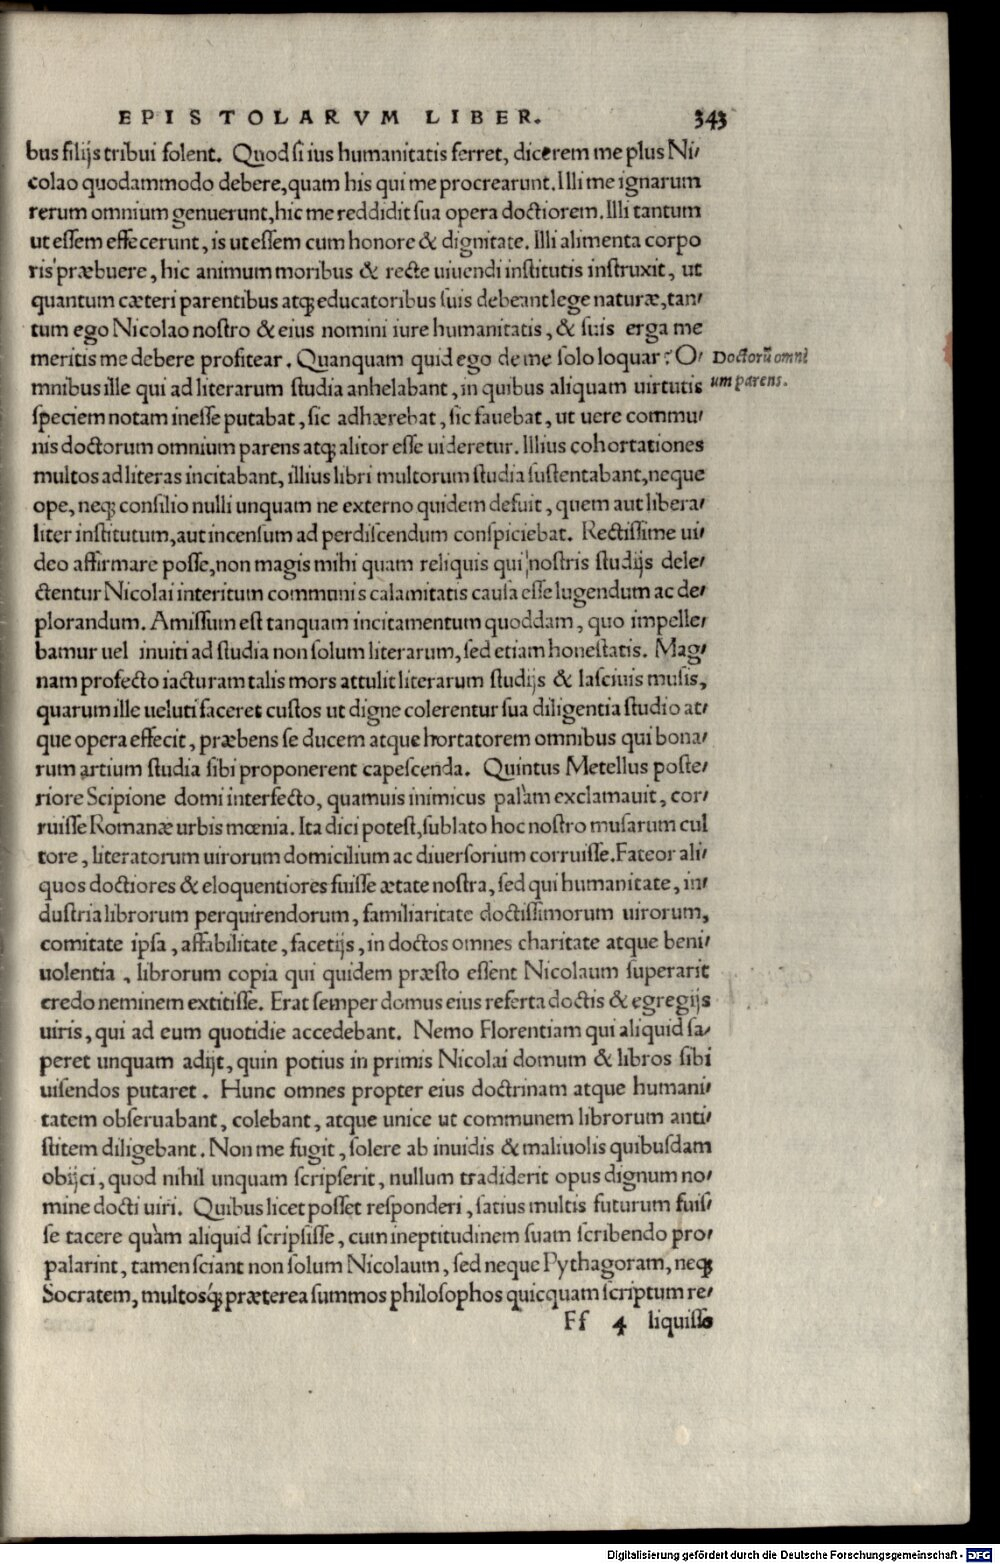 EPISTOLARVM LIBER. 343
bus filijs tribui ſolent. Quod ſi ius humanitatis ferret, dicerem me plus Ni⸗
colao quodammodo debere, quam his qui me procrearunt. Illi me ignarum
rerum omnium genuerunt, hic me reddidit ſua opera doctiorem. Illi tantum
ut eſſem effecerunt, is ut eſſem cum honore & dignitate. Illi alimenta corpo
ris præbuere, hic animum moribus & recte uiuendi inſtitutis inſtruxit, ut
quantum cæteri parentibus atq; educatoribus ſuis debeant lege naturæ, tan⸗
tum ego Nicolao noſtro & eius nomini iure humanitatis, & ſuis erga me
meritis me debere profitear. Quanquam quid ego de me ſolo loquar? O⸗
Doctorū omni
um parens.
mnibus ille qui ad literarum ſtudia anhelabant, in quibus aliquam uirtutis
ſpeciem notam ineſſe putabat, ſic adhærebat, ſic fauebat, ut uere commu⸗
nis doctorum omnium parens atq; alitor eſſe uideretur. Illius cohortationes
multos ad literas incitabant, illius libri multorum ſtudia ſuſtentabant, neque
ope, neq; conſilio nulli unquam ne externo quidem defuit, quem aut libera⸗
liter inſtitutum, aut incenſum ad perdiſcendum conſpiciebat. Rectiſſime ui⸗
deo affirmare poſſe, non magis mihi quam reliquis qui noſtris ſtudijs dele⸗
ctentur Nicolai interitum communis calamitatis cauſa eſſe lugendum ac de⸗
plorandum. Amiſſum eſt tanquam incitamentum quoddam, quo impelle⸗
bamur uel inuiti ad ſtudia non ſolum literarum, ſed etiam honeſtatis. Mag⸗
nam profecto iacturam talis mors attulit literarum ſtudijs & laſciuis muſis,
quarum ille ueluti ſaceret cuſtos ut digne colerentur ſua diligentia ſtudio at⸗
que opera effecit, præbens ſe ducem atque hortatorem omnibus qui bona⸗
rum artium ſtudia ſibi proponerent capeſcenda. Quintus Metellus poſte⸗
riore Scipione domi interfecto, quamuis inimicus palàm exclamauit, cor⸗
ruiſſe Romanæ urbis mœnia. Ita dici poteſt, ſublato hoc noſtro muſarum cul
tore, literatorum uirorum domicilium ac diuerſorium corruiſſe. Fateor ali⸗
quos doctiores & eloquentiores fuiſſe ætate noſtra, ſed qui humanitate, in⸗
duſtria librorum perquirendorum, familiaritate doctiſſimorum uirorum,
comitate ipſa, affabilitate, facetijs, in doctos omnes charitate atque beni⸗
uolentia, librorum copia qui quidem præſto eſſent Nicolaum ſuperarit
credo neminem extitiſſe. Erat ſemper domus eius referta doctis & egregijs
uiris, qui ad eum quotidie accedebant. Nemo Florentiam qui aliquid ſa⸗
peret unquam adijt, quin potius in primis Nicolai domum & libros ſibi
uiſendos putaret. Hunc omnes propter eius doctrinam atque humani⸗
tatem obſeruabant, colebant, atque unice ut communem librorum anti⸗
ſtitem diligebant. Non me fugit, ſolere ab inuidis & maliuolis quibuſdam
obijci, quod nihil unquam ſcripſerit, nullum tradiderit opus dignum no⸗
mine docti uiri. Quibus licet poſſet reſponderi, ſatius multis futurum fuiſ⸗
ſe tacere quàm aliquid ſcripſiſſe, cum ineptitudinem ſuam ſcribendo pro⸗
palarint, tamen ſciant non ſolum Nicolaum, ſed neque Pythagoram, neq;
Socratem, multosq́; præterea ſummos philoſophos quicquam ſcriptum re⸗
Ff 4 liquiſſe
Digitalisierung gefördert durch die Deutsche Forschungsgemeinschaft - DFG